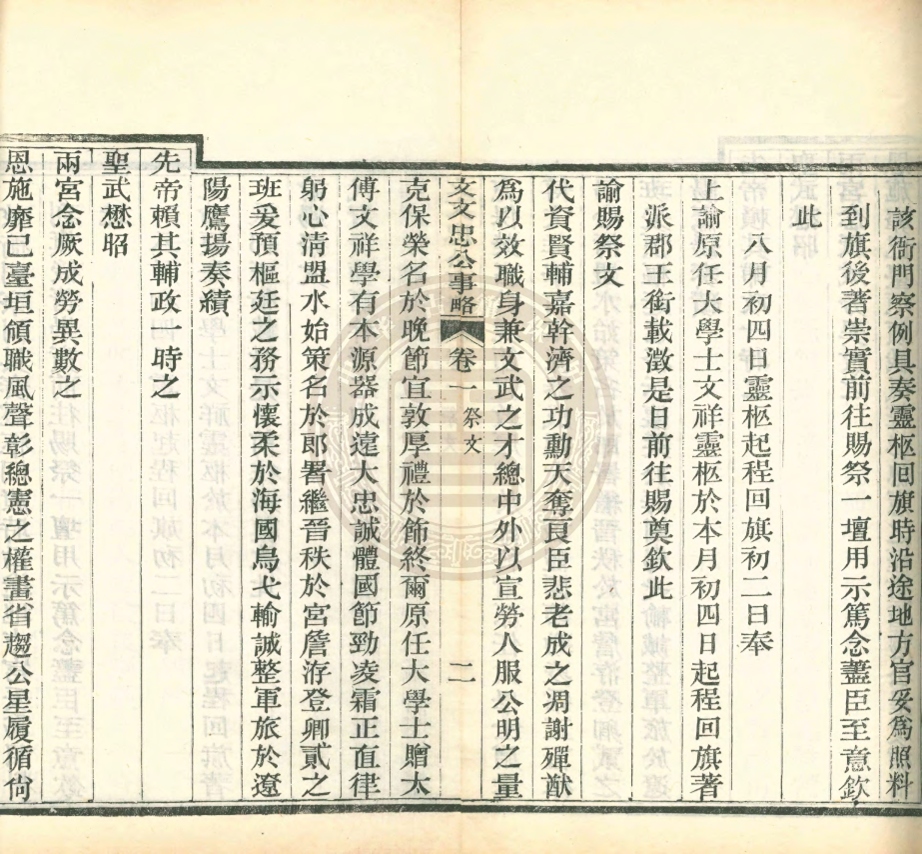 該衙門察例具奏靈柩回旗時沿途地方官妥為照料
到旗後著崇實前往賜祭一壇用示篤念藎臣至意欽
此
八月初四日靈柩起程回旗初二日奉
上諭原任大學士文祥靈柩於本月初四日起程回旗著
派郡王銜載澂是日前往賜奠欽此
諭賜祭文
代資賢輔嘉幹濟之功勳天奪良臣悲老成之凋謝殫猷
為以效職身兼文武之才總中外以宣勞人服公明之量
文文忠公事略 卷一 祭文 二
克保榮名於晚節宜敦厚禮於飾終爾原任大學士贈太
傅文祥學有本源器成遠大忠誠體國節勁凌霜正直律
躬心清盟水始策名於郎署繼晉秩於宮詹洊登卿貳之
班爰預樞廷之務示懷柔於海國烏弋輸誠整軍旅於遼
陽鷹揚奏績
先帝賴其輔政一時之
聖武懋昭
兩宮念厥成勞異數之
恩施靡已臺垣領職風聲彰總憲之權畫省趨公星履循尙